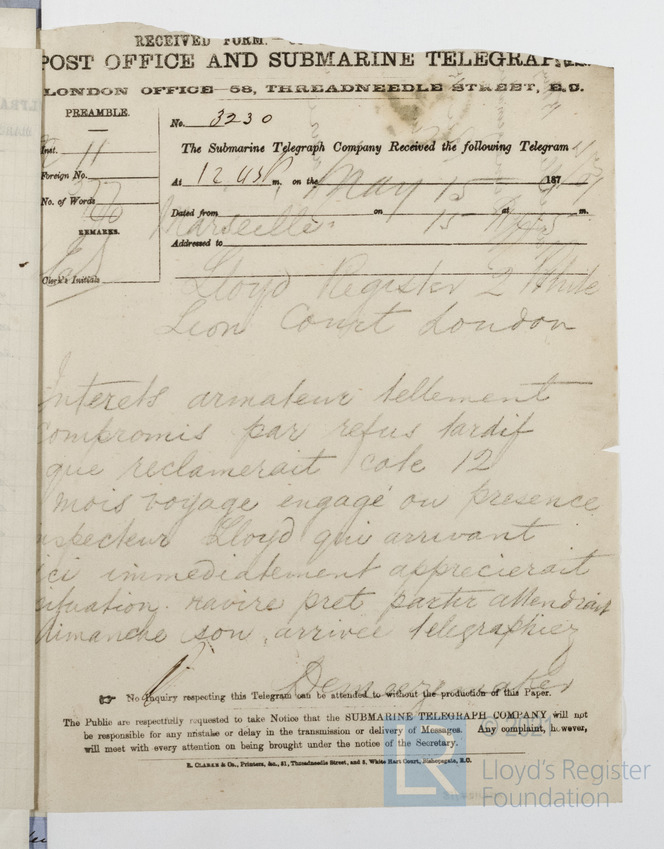 RECEIVED FORM.
POST OFFICE AND SUBMARINE TELEGRAPHS.
LONDON OFFICE—58, THREADNEEDLE STREET, E.C.
PREAMBLE.
Inst. 11
Foreign No.
No. of Words
REMARKS.
Clerk's Initials
No. 3230
The Submarine Telegraph Company Received the following Telegram
At 12.45 P m. on the May 15 187
Dated from Marseille on 15 at m.
Addressed to
Lloyd Register 2 White
Lion Court London
Interets armateur tellement
compromis par refus tardif
que reclamerait cote 12
mois voyage engage ou presence
inspecteur Lloyd qui arrivant
ici immediatement apprecierait
situation. navire pret partir attendrait
dimanche son arrivée telegraphiez
☞ No Inquiry respecting this Telegram can be attended to without the production of this Paper.
The Public are respectfully requested to take Notice that the SUBMARINE TELEGRAPH COMPANY will not
be responsible for any mistake or delay in the transmission or delivery of Messages. Any complaint, however,
will meet with every attention on being brought under the notice of the Secretary.
R. CLARKE & Co., Printers, &c., 51, Threadneedle Street, and 3, White Hart Court, Bishopsgate, E.C.
© 2021
LR
Lloyd's Register
Foundation